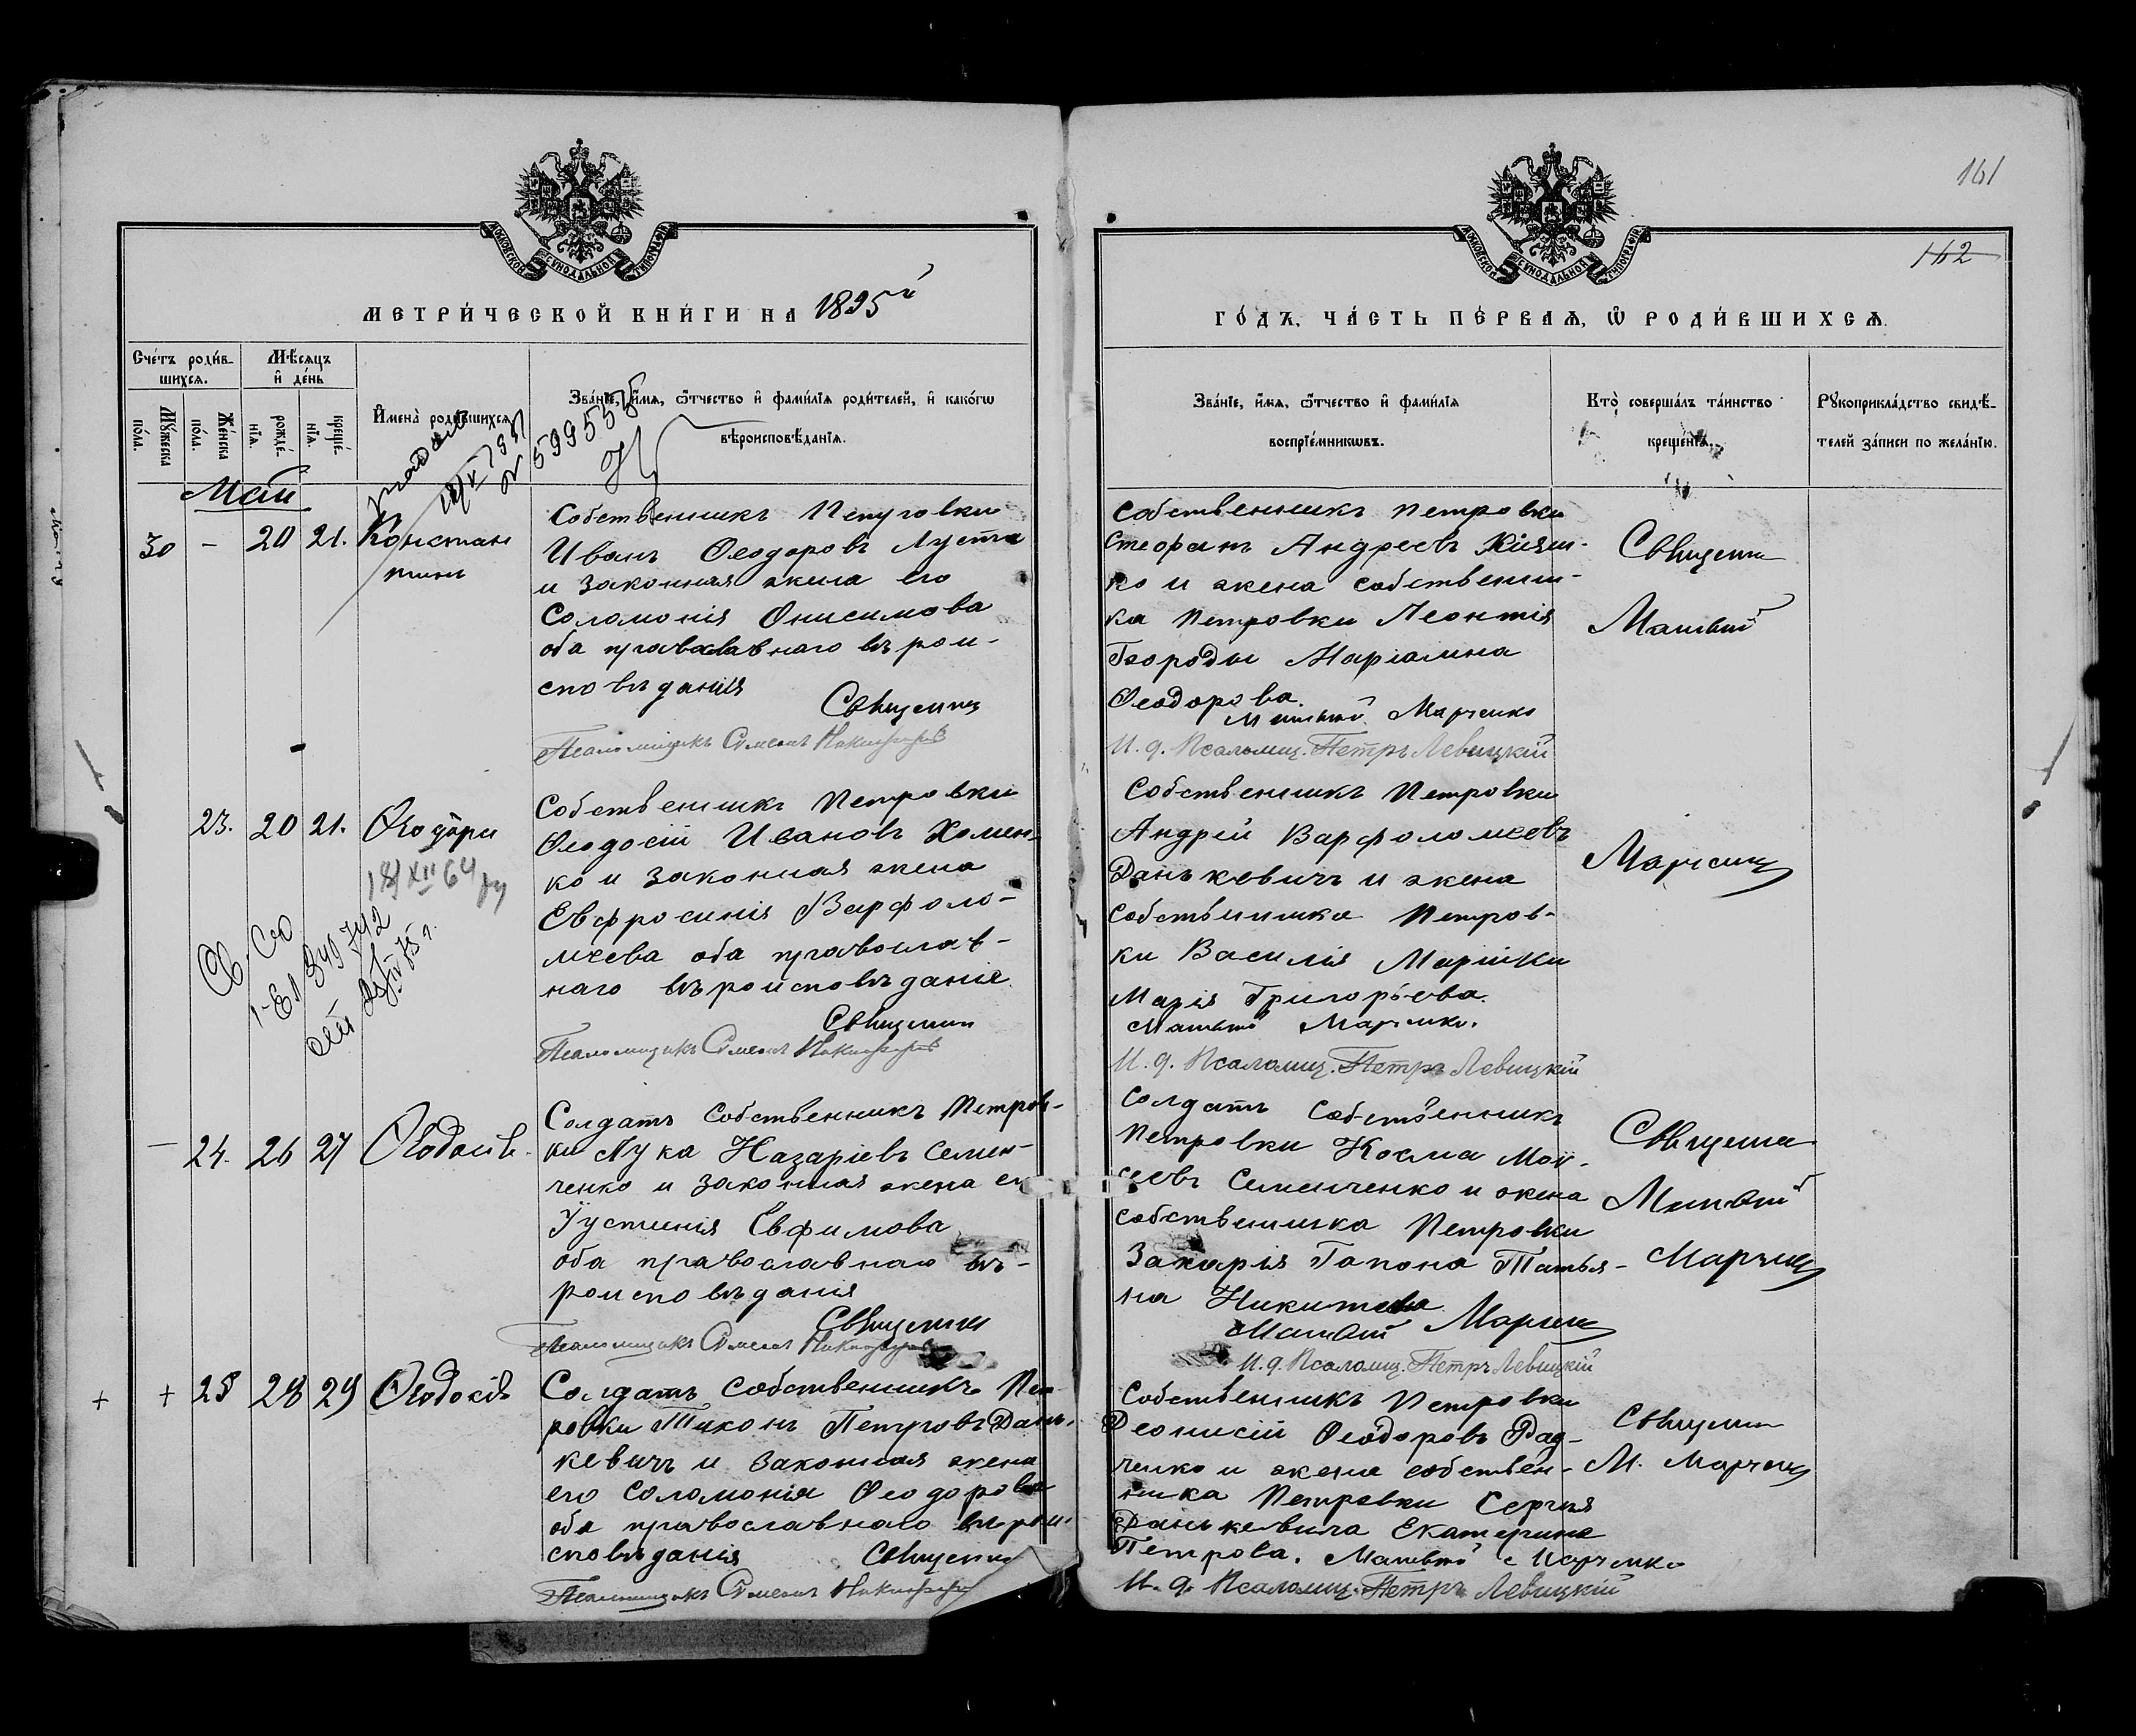 161
162
МОСКОВСКОЙ СУНОДАЛЬНОЙ ТИПОГРАФІИ
МОСКОВСКОЙ СУНОДАЛЬНОЙ ТИПОГРАФІИ
МЕТРИ́ЧЕСКОЙ КНИ́ГИ НА 1895й
ГО́ДЪ, ЧА́СТЬ ПЕ́РВАѦ, Ѡ҆ РОДИ́ВШИХСѦ.
Сче́тъ роди́в-
шихсѧ.
Мѣ́сѧцъ
и҆ де́нь
Мꙋ́жеска по́ла.
Же́нска по́ла.
рожде́-нїѧ.
креще́-нїѧ.
И҆мена̀ роди́вшихсѧ.
Зва́нїе, и҆́мѧ, ѻ҆́тчество и҆ фами́лїѧ роди́телей, и҆ како́гѡ
вѣроисповѣ́данїѧ.
Зва́нїе, и҆́мѧ, ѻ҆́тчество и҆ фами́лїѧ
воспрїе́мникѡвъ.
Кто̀ соверша́лъ та́инство
креще́нїѧ.
Рꙋкоприкла́дство свидѣ́-
телей за́писи по жела́нїю.
599555
Май
30 – 20 21. Констан
тинъ
Собственникъ Петровки
Иванъ Ѳеодоровъ Луста
и законная жена его
Соломонія Онисимова
оба православнаго вѣрои-
сповѣданія
Священник
Псаломщикъ Симеонъ Никифоровъ
Собственникъ Петровки
Стефанъ Андреевъ Кіяш-
ко и жена собственни-
ка Петровки Леонтія
Бороды Маріамна
Ѳеодорова.
Матвѣй Марченко
И. д. Псаломщ. Петръ Левицкій
Священ
Матвѣй
23. 20 21. Ѳеодора
18/XII 64
Собственникъ Петровки
Ѳеодосій Ивановъ Хомен-
ко и законная жена
Евфросинія Варфоло-
меева оба православ-
наго вѣроисповѣданія.
Священник
Псаломщикъ Симеонъ Никифоровъ
Собственникъ Петровки
Андрей Варфоломеевъ
Данькевичъ и жена
собственника Петров-
ки Василія Марійки
Марія Григорьева.
Матвѣй Марченко.
И. д. Псаломщ. Петръ Левицкій
Марченко
– 24. 26 27 Ѳеодосія.
Солдатъ собственникъ Петров-
ки Лука Назаріевъ Семен-
ченко и законная жена его
Іустинія Евфимова
оба православнаго вѣ-
роисповѣданія
Священник
Псаломщикъ Симеонъ Никифоровъ
Солдатъ собственникъ
Петровки Косма Мои-
сеевъ Семенченко и жена
собственника Петровки
Захарія Гапона Татья-
на Никитова
Матвѣй Марченко
И. д. Псаломщ. Петръ Левицкій
Священник
Матвѣй
Марченко
+ + 25 28 29 Ѳеодосія
Солдатъ собственникъ Пет
ровки Тихонъ Петровъ Дань-
кевичъ и законная жена
его Соломонія Ѳеодорова
оба православнаго вѣрои-
сповѣданія Священник
Псаломщикъ Симеонъ Никифоров
Собственникъ Петровки
Деонисій Ѳеодоровъ Рад-
ченко и жена собствен-
ника Петровки Сергія
Данькевича Екатерина
Петрова. Матвѣй Марченко
И. д. Псаломщ. Петръ Левицкій
Священник
М. Марченко